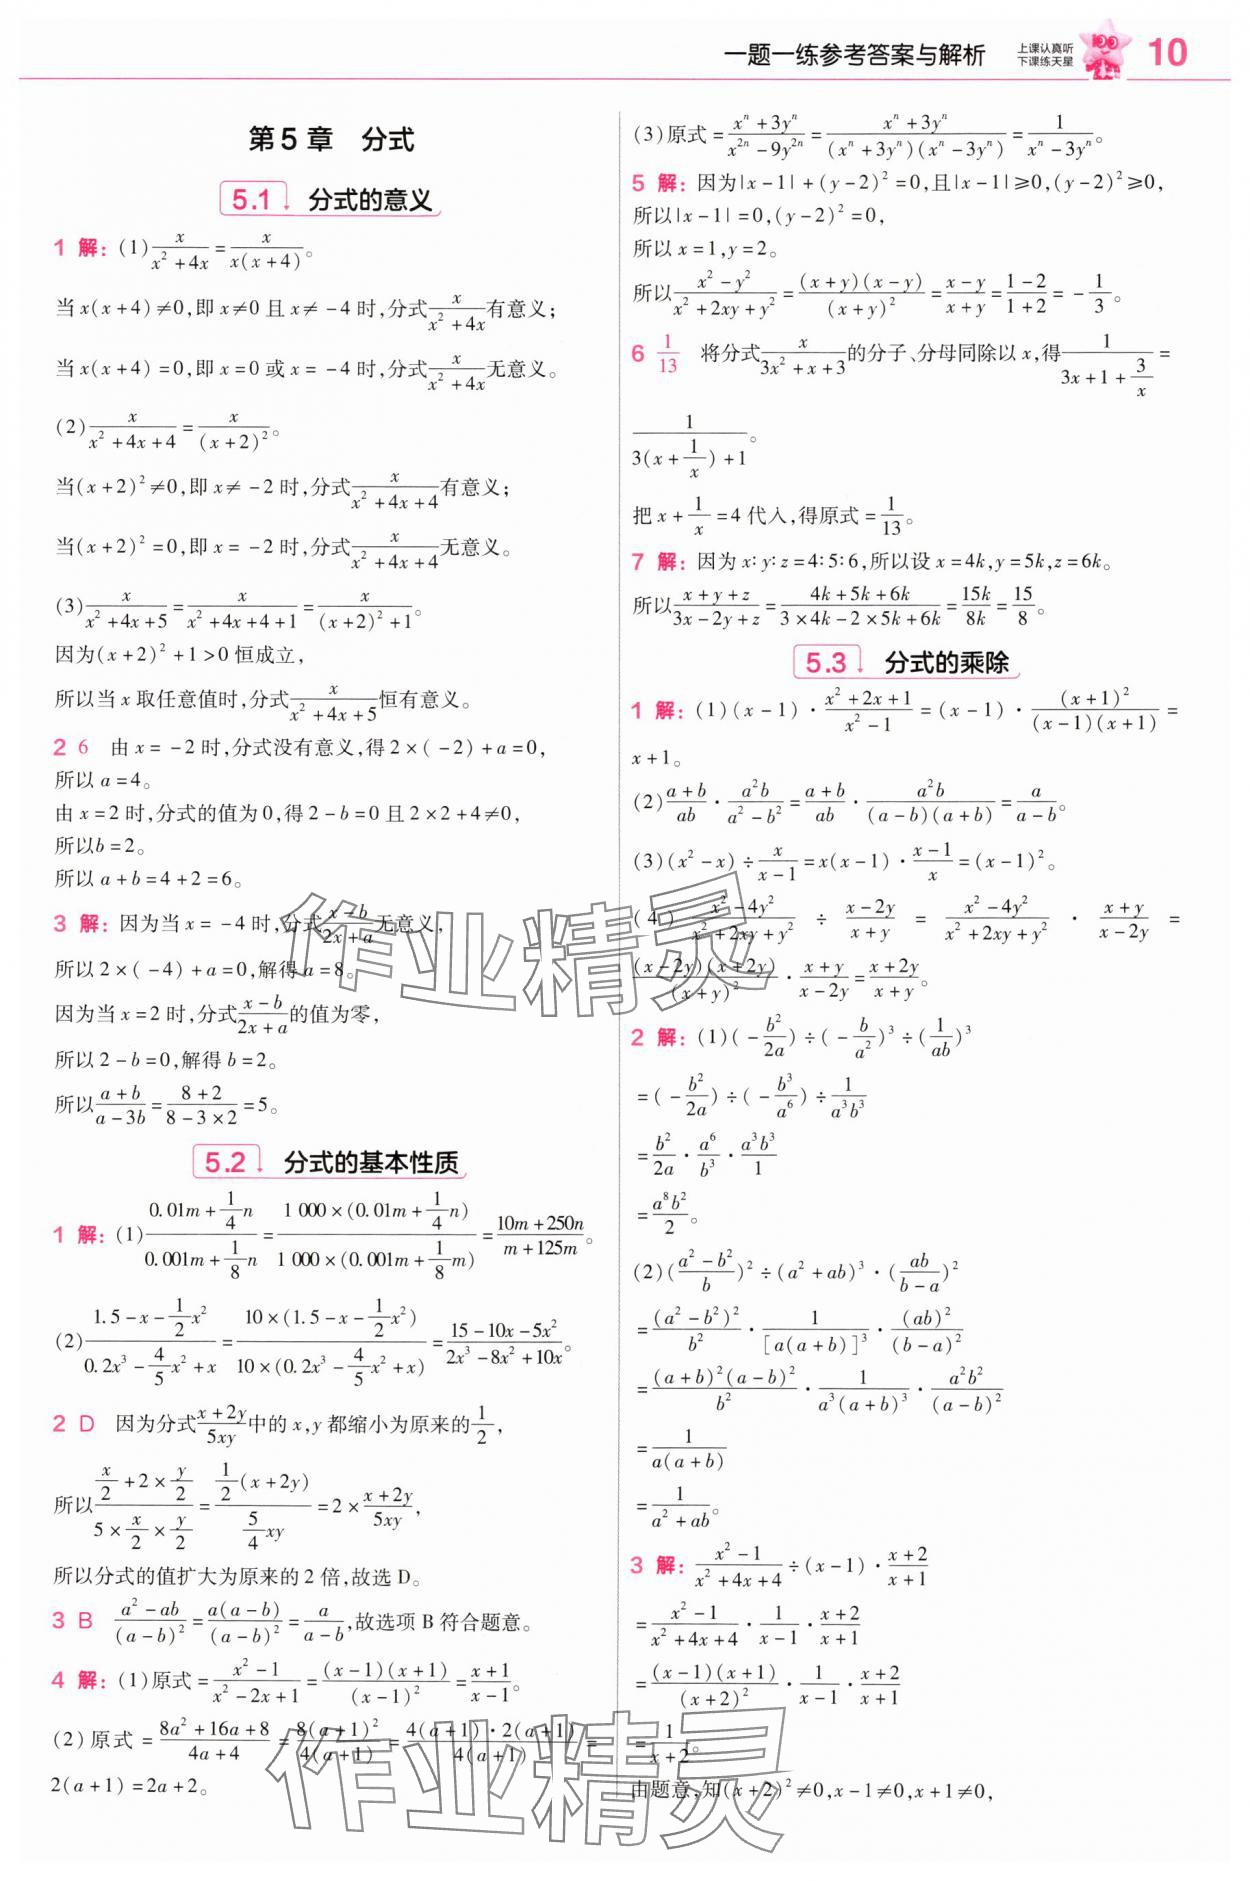 一题一练参考答案与解析
上课认真听
下课练天星
10
第5章 分式
5.1 分式的意义
1 解:(1) x/(x²+4x) = x/(x(x+4))。
当x(x+4)≠0,即x≠0且x≠-4时,分式x/(x²+4x)有意义;
当x(x+4)=0,即x=0或x=-4时,分式x/(x²+4x)无意义。
(2) x/(x²+4x+4) = x/(x+2)²。
当(x+2)²≠0,即x≠-2时,分式x/(x²+4x+4)有意义;
当(x+2)²=0,即x=-2时,分式x/(x²+4x+4)无意义。
(3) x/(x²+4x+5) = x/(x²+4x+4+1) = x/((x+2)²+1)。
因为(x+2)²+1>0恒成立,
所以当x取任意值时,分式x/(x²+4x+5)恒有意义。
2 6 由x=-2时,分式没有意义,得2×(-2)+a=0,
所以a=4。
由x=2时,分式的值为0,得2-b=0且2×2+4≠0,
所以b=2。
所以a+b=4+2=6。
3 解:因为当x=-4时,分式(x-b)/(2x+a)无意义,
所以2×(-4)+a=0,解得a=8。
因为当x=2时,分式(x-b)/(2x+a)的值为零,
所以2-b=0,解得b=2。
所以(a+b)/(a-3b) = (8+2)/(8-3×2) =5。
5.2 分式的基本性质
1 解:(1) (0.01m+1/4 n)/(0.001m+1/8 n) = (1 000×(0.01m+1/4 n))/(1 000×(0.001m+1/8 m)) = (10m+250n)/(m+125m)。
(2) (1.5-x-1/2 x²)/(0.2x³-4/5 x²+x) = (10×(1.5-x-1/2 x²))/(10×(0.2x³-4/5 x²+x)) = (15-10x-5x²)/(2x³-8x²+10x)。
2 D 因为分式(x+2y)/(5xy)中的x,y都缩小为原来的1/2,
所以(x/2+2×y/2)/(5×x/2×y/2) = (1/2(x+2y))/(5/4 xy) =2×(x+2y)/(5xy),
所以分式的值扩大为原来的2倍,故选D。
3 B (a²-ab)/(a-b)² = a(a-b)/(a-b)² = a/(a-b),故选项B符合题意。
4 解:(1)原式=(x²-1)/(x²-2x+1) = (x-1)(x+1)/(x-1)² = (x+1)/(x-1)。
(2)原式=(8a²+16a+8)/(4a+4) = 8(a+1)²/(4(a+1)) = 4(a+1)·2(a+1)/(4(a+1)) =
2(a+1)=2a+2。
(3)原式=(xⁿ+3yⁿ)/(x²ⁿ-9y²ⁿ) = (xⁿ+3yⁿ)/((xⁿ+3yⁿ)(xⁿ-3yⁿ)) = 1/(xⁿ-3yⁿ)。
5 解:因为|x-1|+(y-2)²=0,且|x-1|≥0,(y-2)²≥0,
所以|x-1|=0,(y-2)²=0,
所以x=1,y=2。
所以(x²-y²)/(x²+2xy+y²) = (x+y)(x-y)/(x+y)² = (x-y)/(x+y) = (1-2)/(1+2) = -1/3。
6 1/13 将分式x/(3x²+x+3)的分子、分母同除以x,得1/(3x+1+3/x) =
1/(3(x+1/x)+1)。
把x+1/x=4代入,得原式=1/13。
7 解:因为x∶y∶z=4∶5∶6,所以设x=4k,y=5k,z=6k。
所以(x+y+z)/(3x-2y+z) = (4k+5k+6k)/(3×4k-2×5k+6k) = 15k/8k = 15/8。
5.3 分式的乘除
1 解:(1)(x-1)·(x²+2x+1)/(x²-1) =(x-1)·(x+1)²/((x-1)(x+1)) =
x+1。
(2) (a+b)/ab · a²b/(a²-b²) = (a+b)/ab · a²b/((a-b)(a+b)) = a/(a-b)。
(3)(x²-x)÷x/(x-1) =x(x-1)·(x-1)/x =(x-1)²。
(4) (x²-4y²)/(x²+2xy+y²) ÷ (x-2y)/(x+y) = (x²-4y²)/(x²+2xy+y²) · (x+y)/(x-2y) =
(x-2y)(x+2y)/(x+y)² · (x+y)/(x-2y) = (x+2y)/(x+y)。
2 解:(1)(-b²/2a)÷(-b/a²)³÷(1/ab)³
=(-b²/2a)÷(-b³/a⁶)÷1/(a³b³)
=b²/2a · a⁶/b³ · a³b³/1
=a⁸b²/2。
(2)((a²-b²)/b)²÷(a²+ab)³·(ab/(b-a))²
=(a²-b²)²/b² · 1/[a(a+b)]³ · (ab)²/(b-a)²
=(a+b)²(a-b)²/b² · 1/(a³(a+b)³) · a²b²/(a-b)²
=1/(a(a+b))
=1/(a²+ab)。
3 解:(x²-1)/(x²+4x+4) ÷(x-1)·(x+2)/(x+1)
=(x²-1)/(x²+4x+4) · 1/(x-1) · (x+2)/(x+1)
=(x-1)(x+1)/(x+2)² · 1/(x-1) · (x+2)/(x+1)
=1/(x+2)。
由题意,知(x+2)²≠0,x-1≠0,x+1≠0,
作业精灵
作业精灵